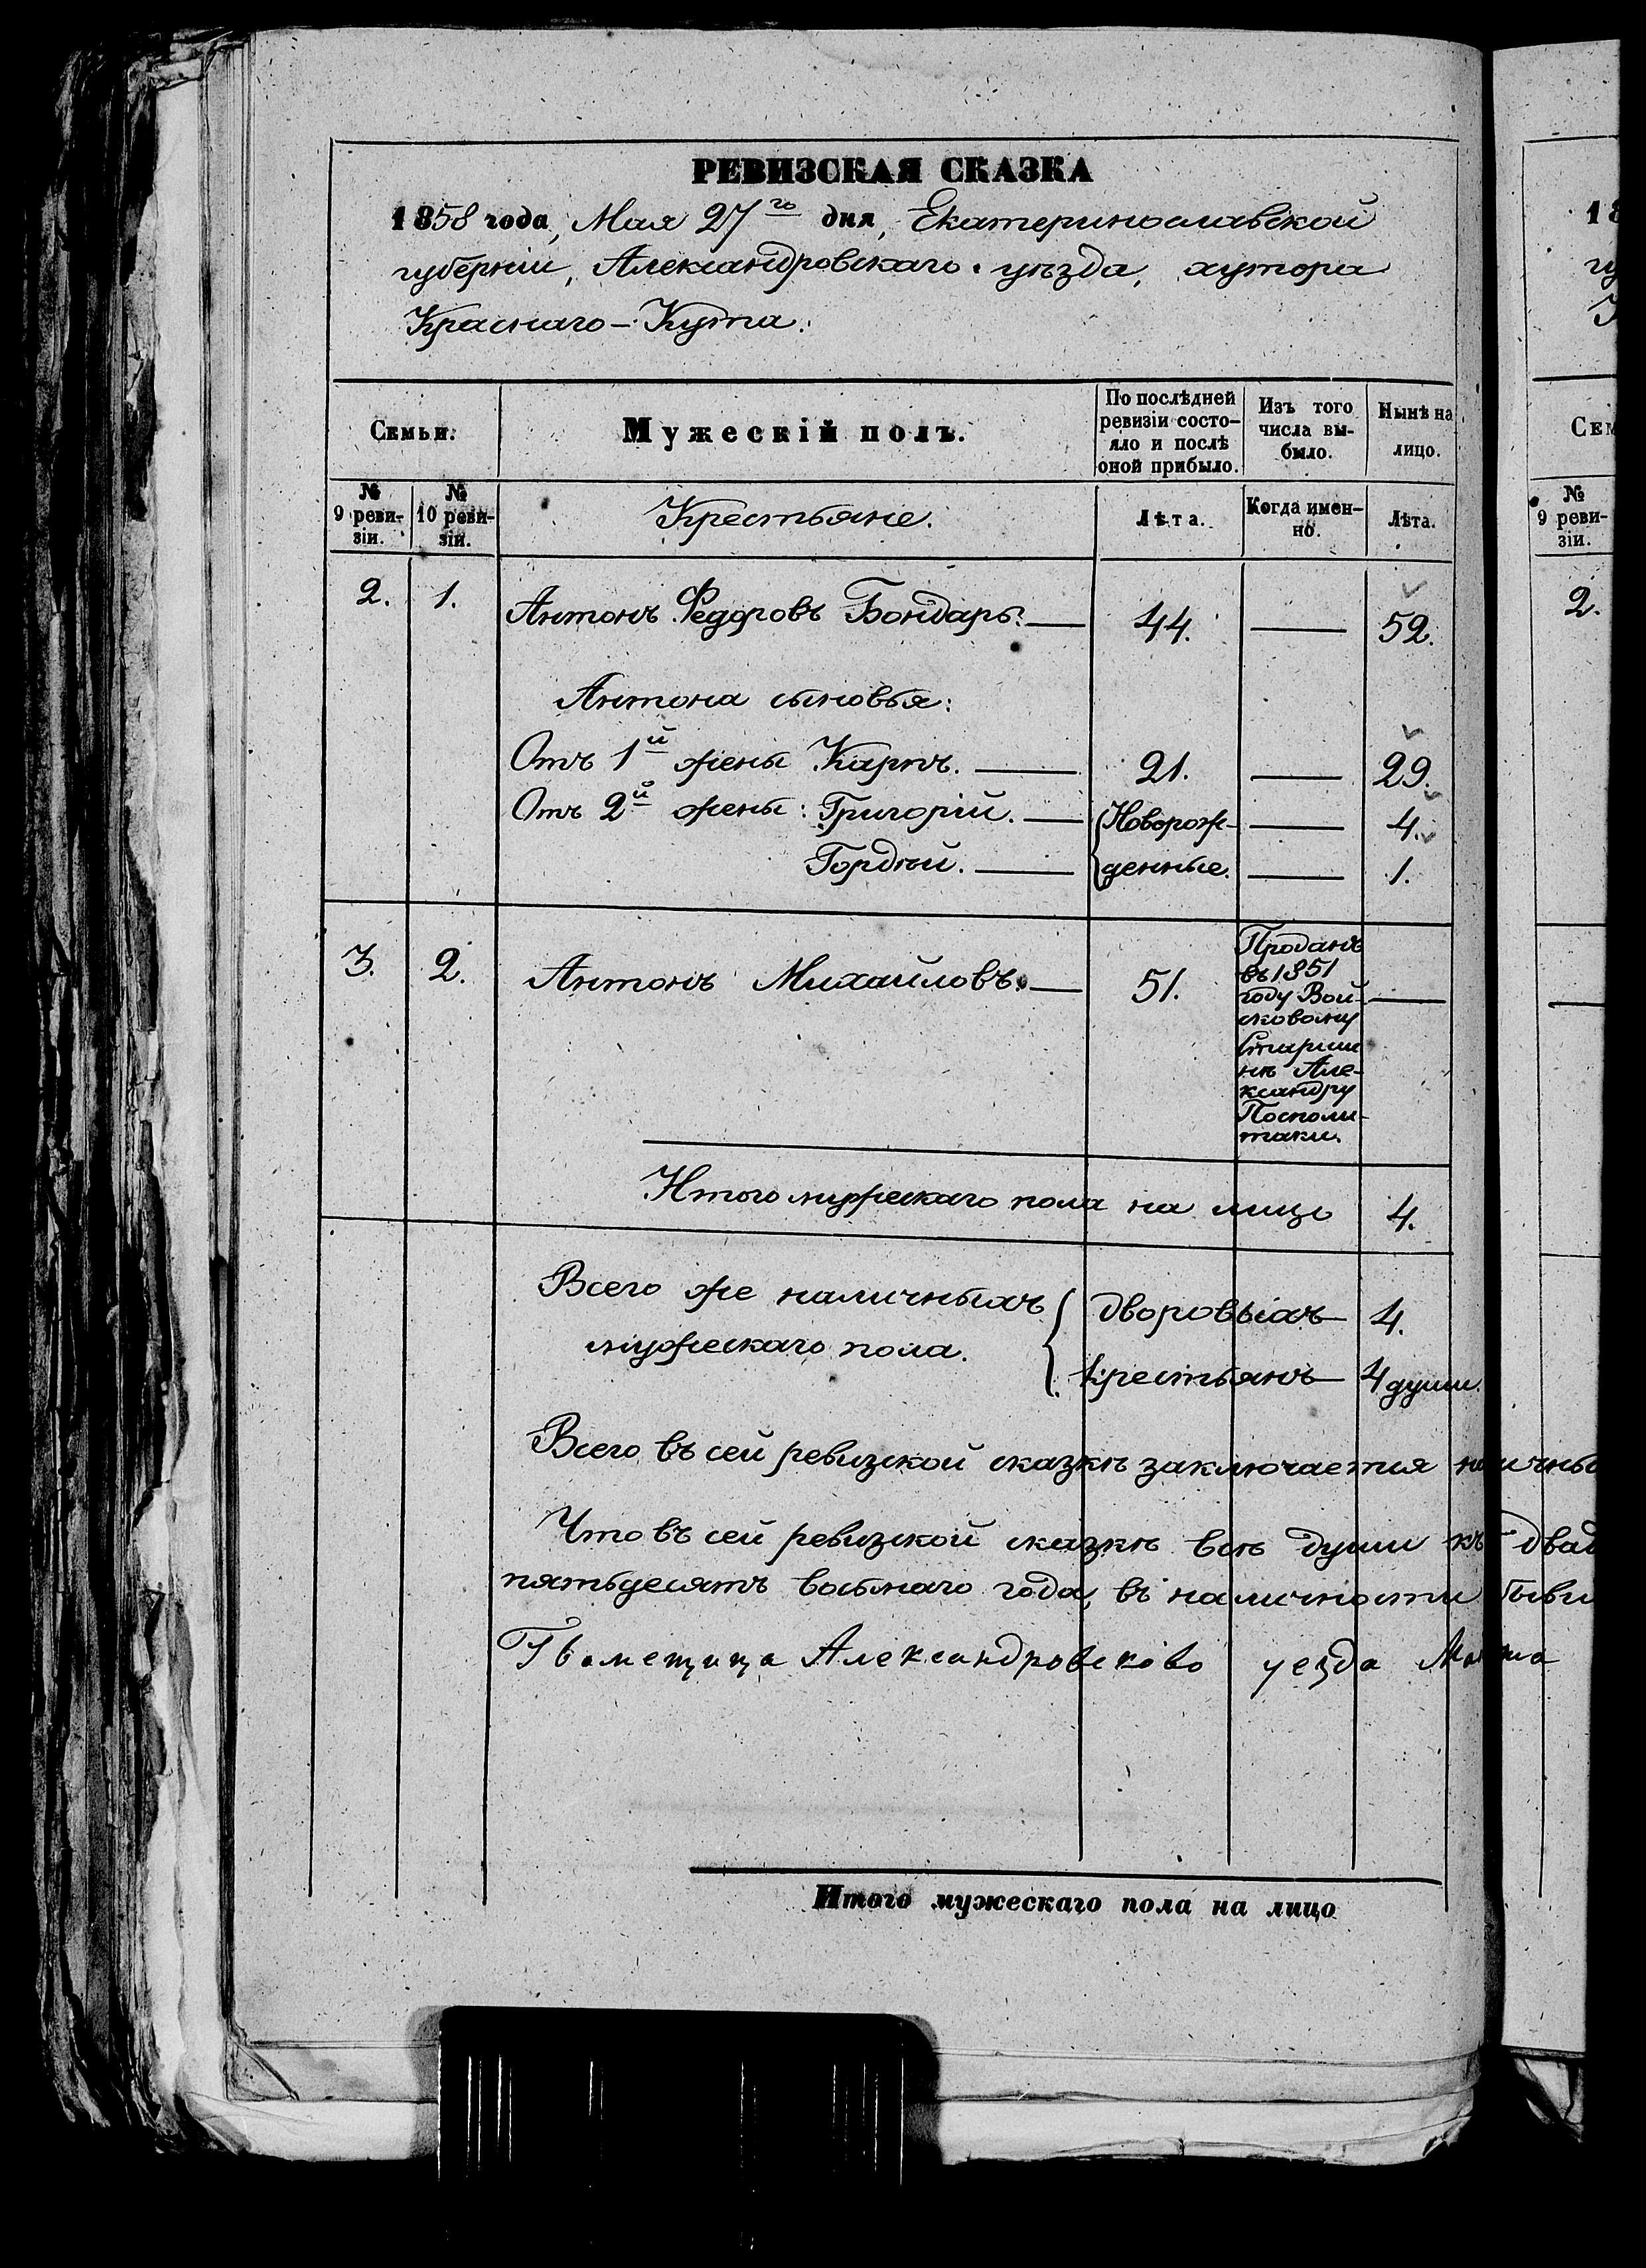 РЕВИЗСКАЯ СКАЗКА
1858 года, Мая 27го дня, Екатеринославской
губерніи, Александровскаго уѣзда, хутора
Краснаго-Кута.
Семьи.
Мужескій полъ.
По послѣдней
ревизіи состо-
яло и послѣ
оной прибыло.
Изъ того
числа вы-
было.
Нынѣ на
лицо.
№
9 реви-
зіи.
№
10 реви-
зіи.
Крестьяне.
Лѣта.
Когда имен-
но.
Лѣта.
2. 1. Антонъ Федоровъ Бондарь. — 44. — 52.
Антона сыновья:
Отъ 1й жены Карпъ. — 21. — 29.
Отъ 2й жены: Григорій. — Новорож- — 4.
Гордѣй. — денные. — 1.
3. 2. Антонъ Михайловъ. — 51. —
Проданъ
въ 1851
году Вой-
сковому
Старши
нѣ Але-
ксандру
Посполи-
таки.
Итого мужескаго пола на лицо 4.
Всего же наличныхъ дворовыхъ — 4.
мужескаго пола. крестьянъ — 4 души.
Всего въ сей ревизской сказкѣ заключается наличны
Что въ сей ревизской сказкѣ всѣ души къ двад
пятьдесятъ восьмаго года, въ наличности бывш
Александровсково уезда
Итого мужескаго пола на лицо
18
гу
Сем
№
9 реви-
зіи.
2.